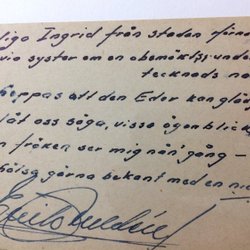 liga Ingrid från staden, förnä
via syster om en obemäkt, under
tecknads na
hoppas att den Eder kan gläd
låt oss säga, vissa ögonblic
n fröken ser mig nån' gång —
hälsg gärna bekant med en na